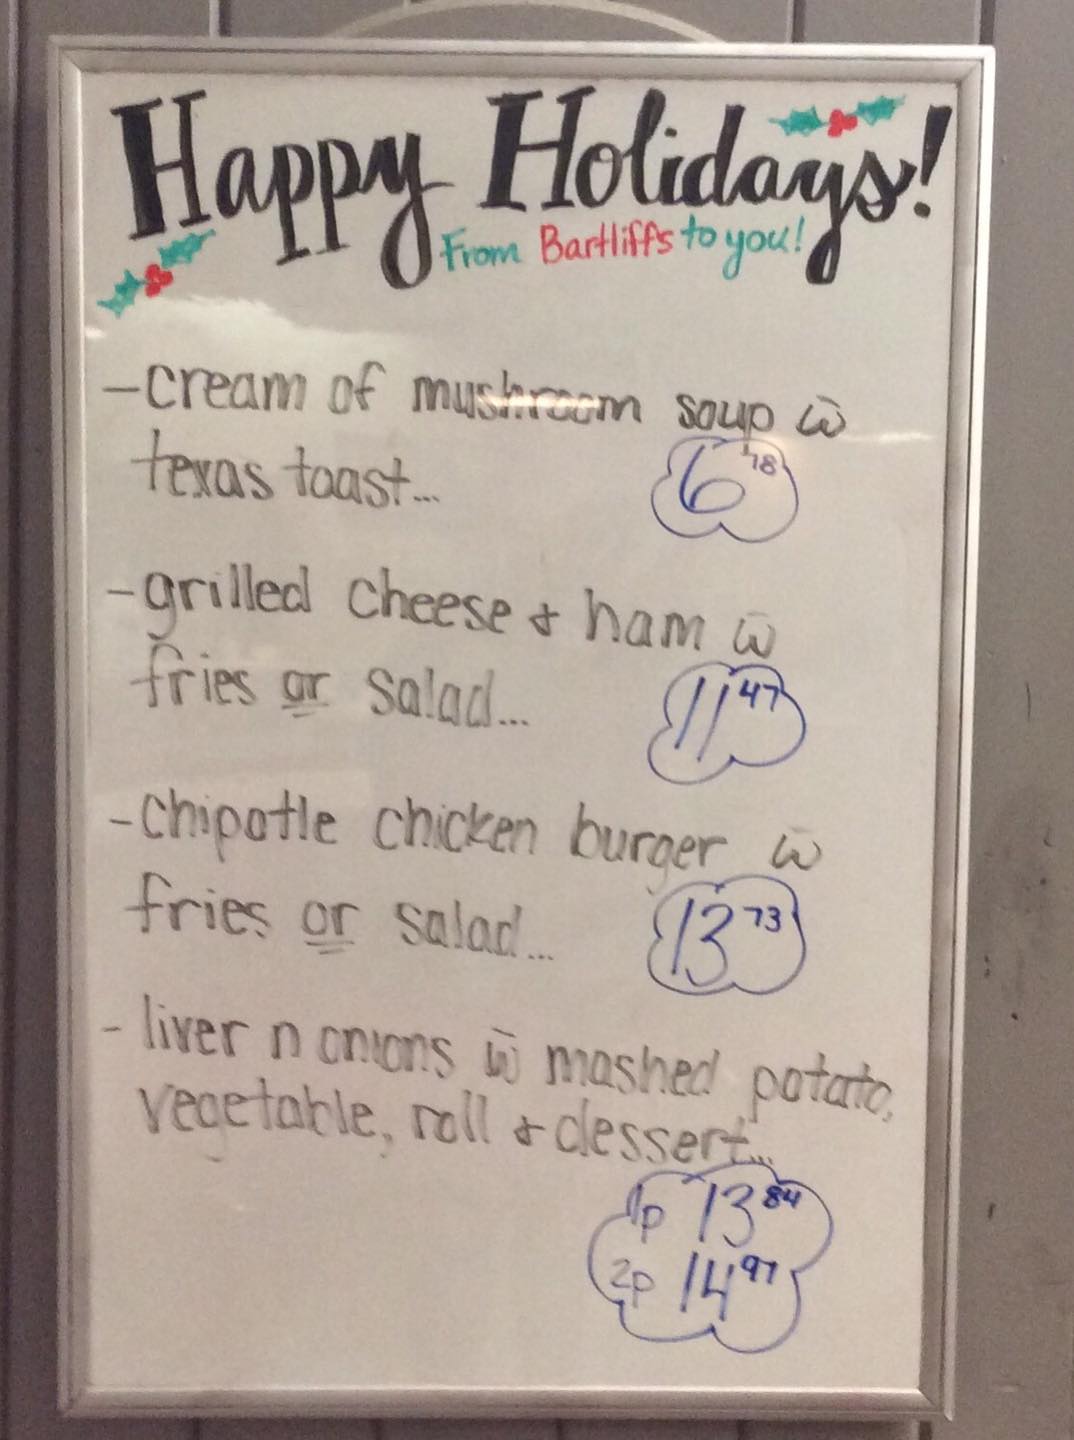 Happy Holidays!
From Bartliffs to you!
- cream of mushroom soup w̄
texas toast...
6.78
- grilled cheese + ham w̄
fries or salad...
11 47
- chipotle chicken burger w̄
fries or salad...
13 73
- liver n onions w̄ mashed potato,
vegetable, roll + dessert...
1p 13 84
2p 14 97